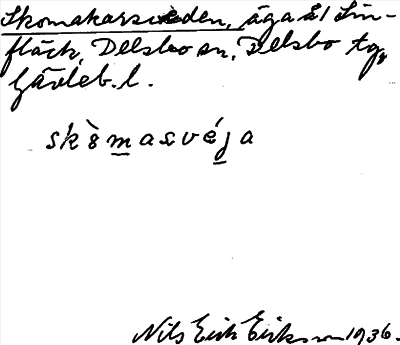 Skomakarsveden, äga å 1 Lin-
fläck, Delsbo sn, Delsbo tg,
Gävleb. l.
skòmasvéja
Nils Erik Eriksson 1936.